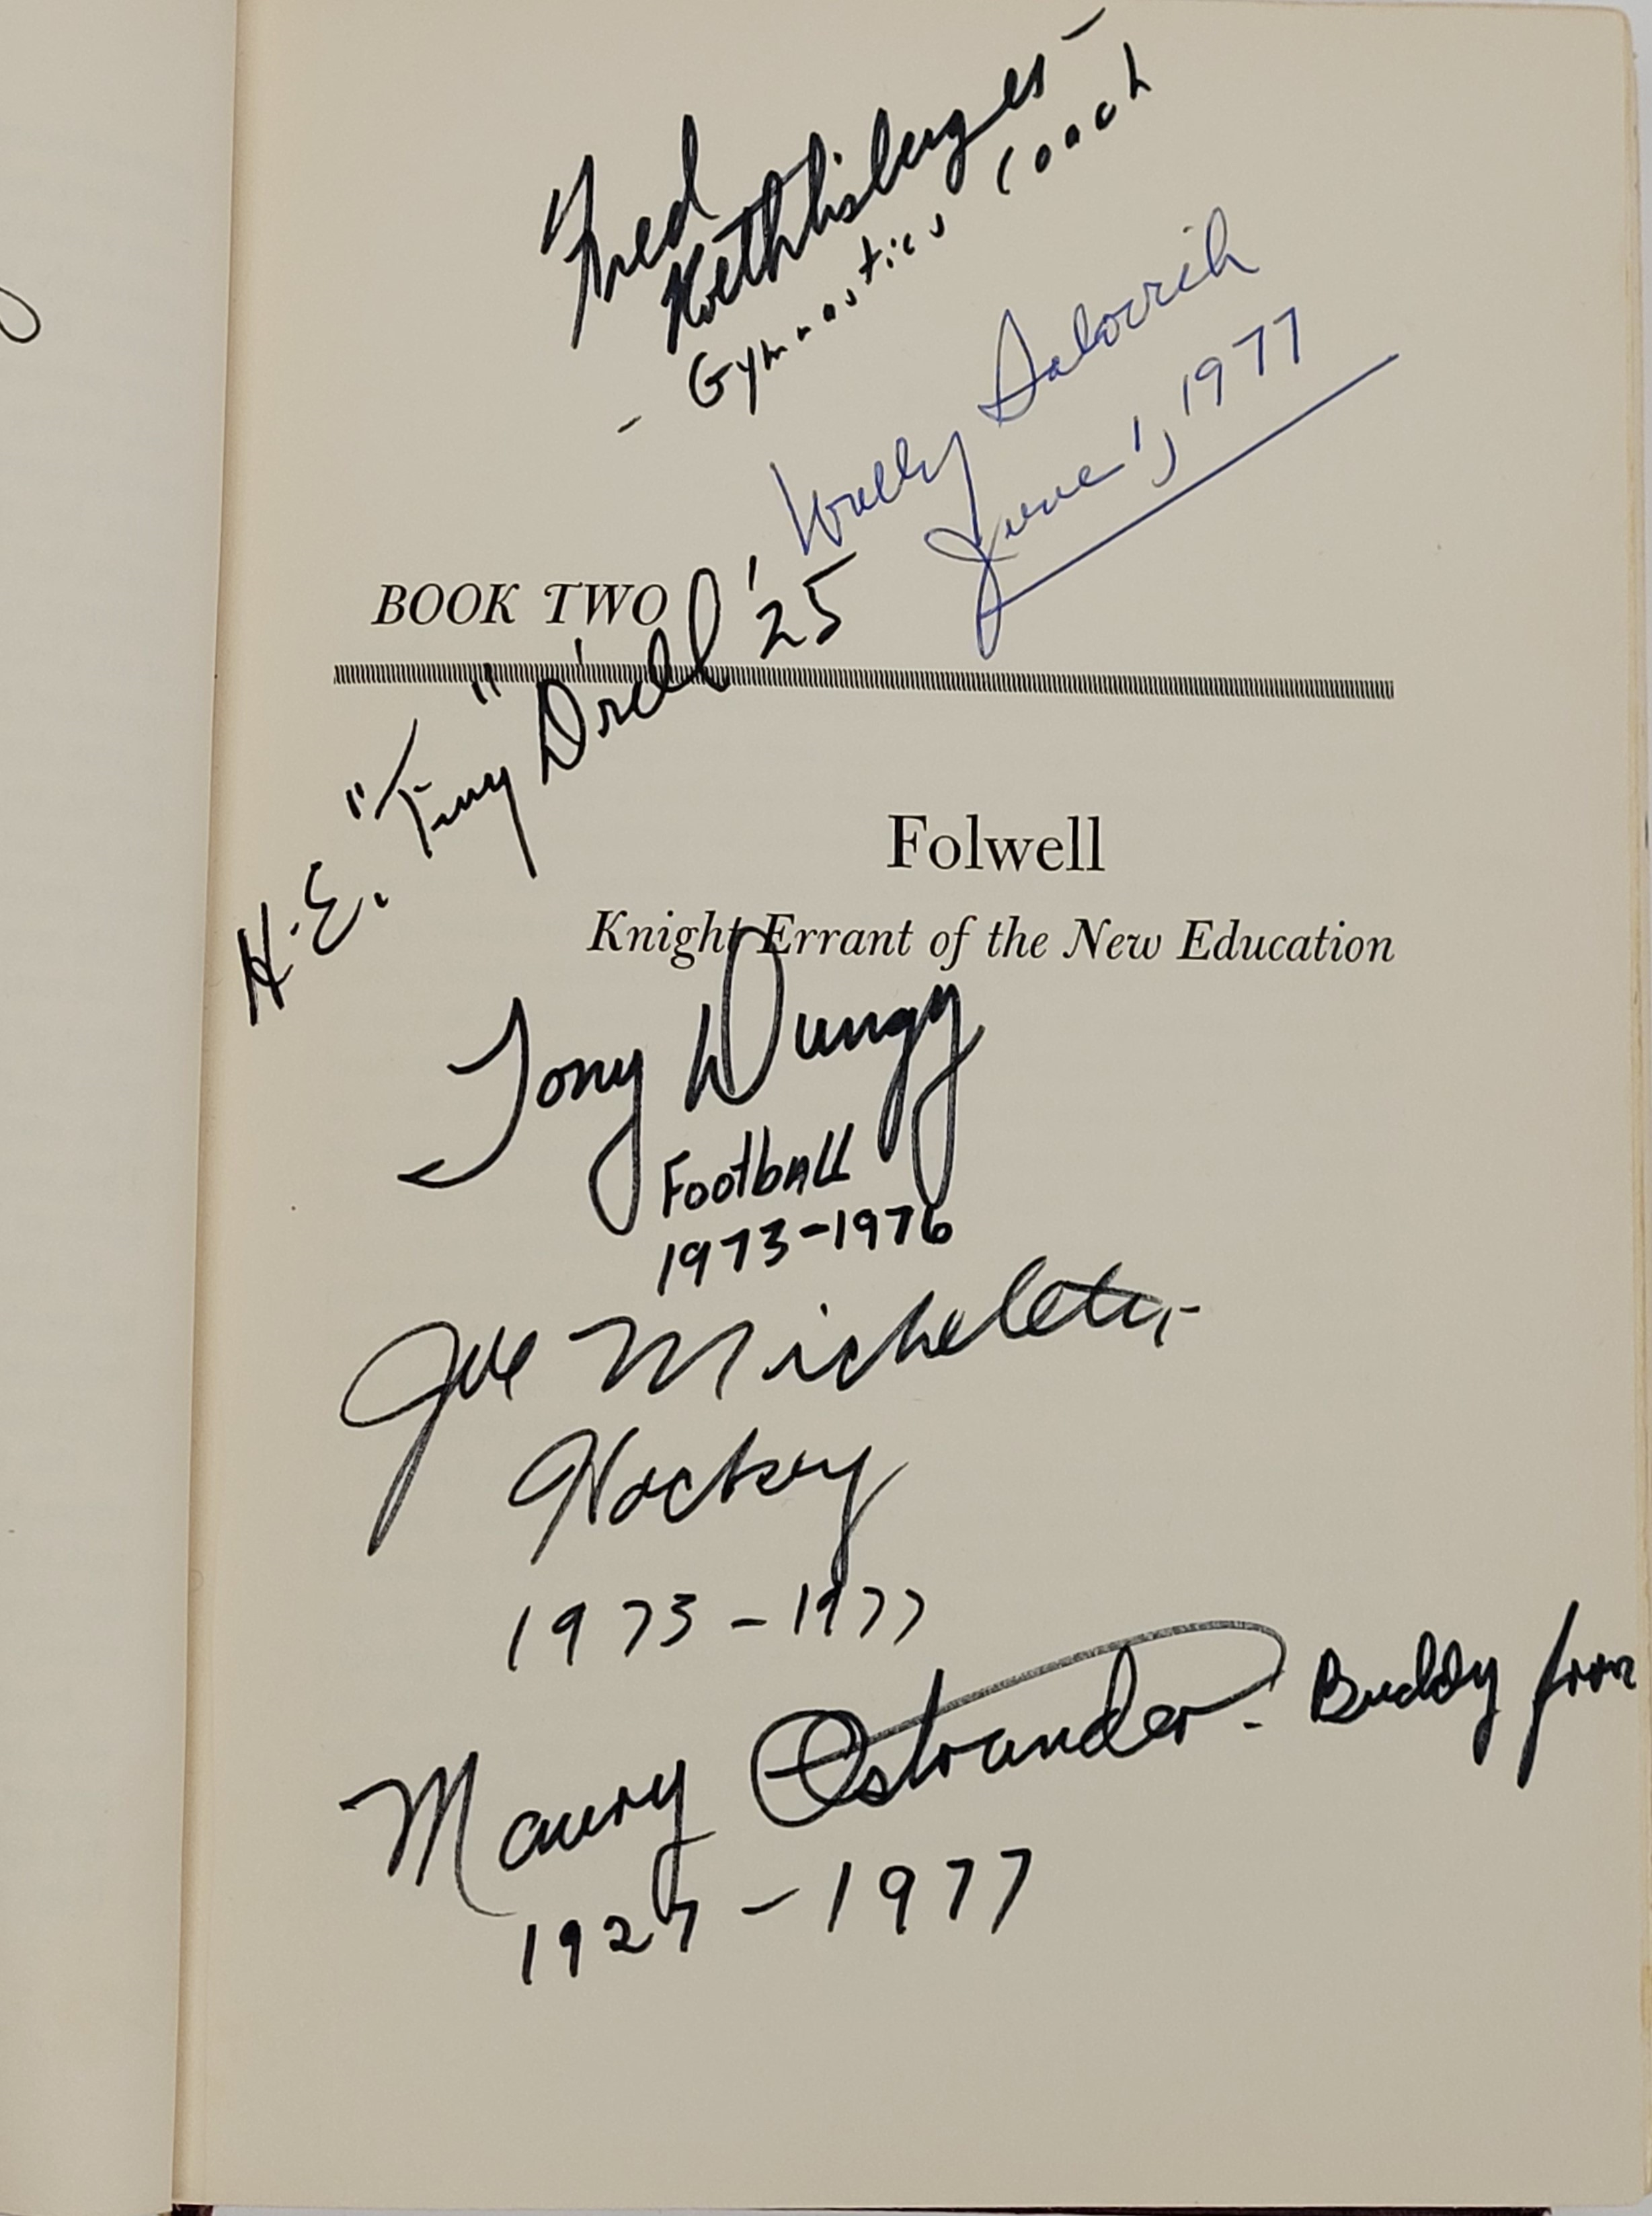 Fred
Roethlisberger -
- Gymnastics Coach
Wally Salovich
June 1, 1977
BOOK TWO
H.E. "Tiny" Drell '25
Folwell
Knight Errant of the New Education
Tony Dungy
Football
1973-1976
Joe Micheletti
Hockey
1973-1977
Maury Ostrander - Buddy from
1927-1977